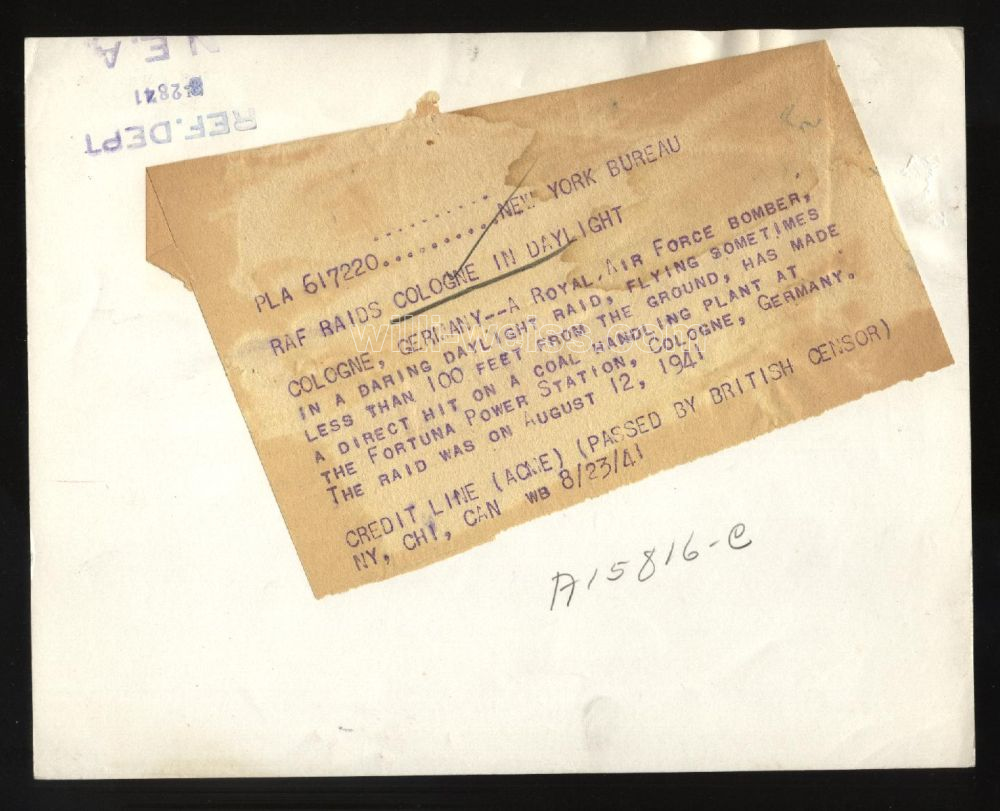 N.E.A.
2841
REF. DEPT
..........
PLA 617220..........NEW YORK BUREAU
RAF RAIDS COLOGNE IN DAYLIGHT
COLOGNE, GERMANY--A ROYAL AIR FORCE BOMBER,
IN A DARING DAYLIGHT RAID, FLYING SOMETIMES
LESS THAN 100 FEET FROM THE GROUND, HAS MADE
A DIRECT HIT ON A COAL HANDLING PLANT AT
THE FORTUNA POWER STATION, COLOGNE, GERMANY.
THE RAID WAS ON AUGUST 12, 1941
CREDIT LINE (ACME) (PASSED BY BRITISH CENSOR)
NY, CHI, CAN WB 8/23/41
A15816-C